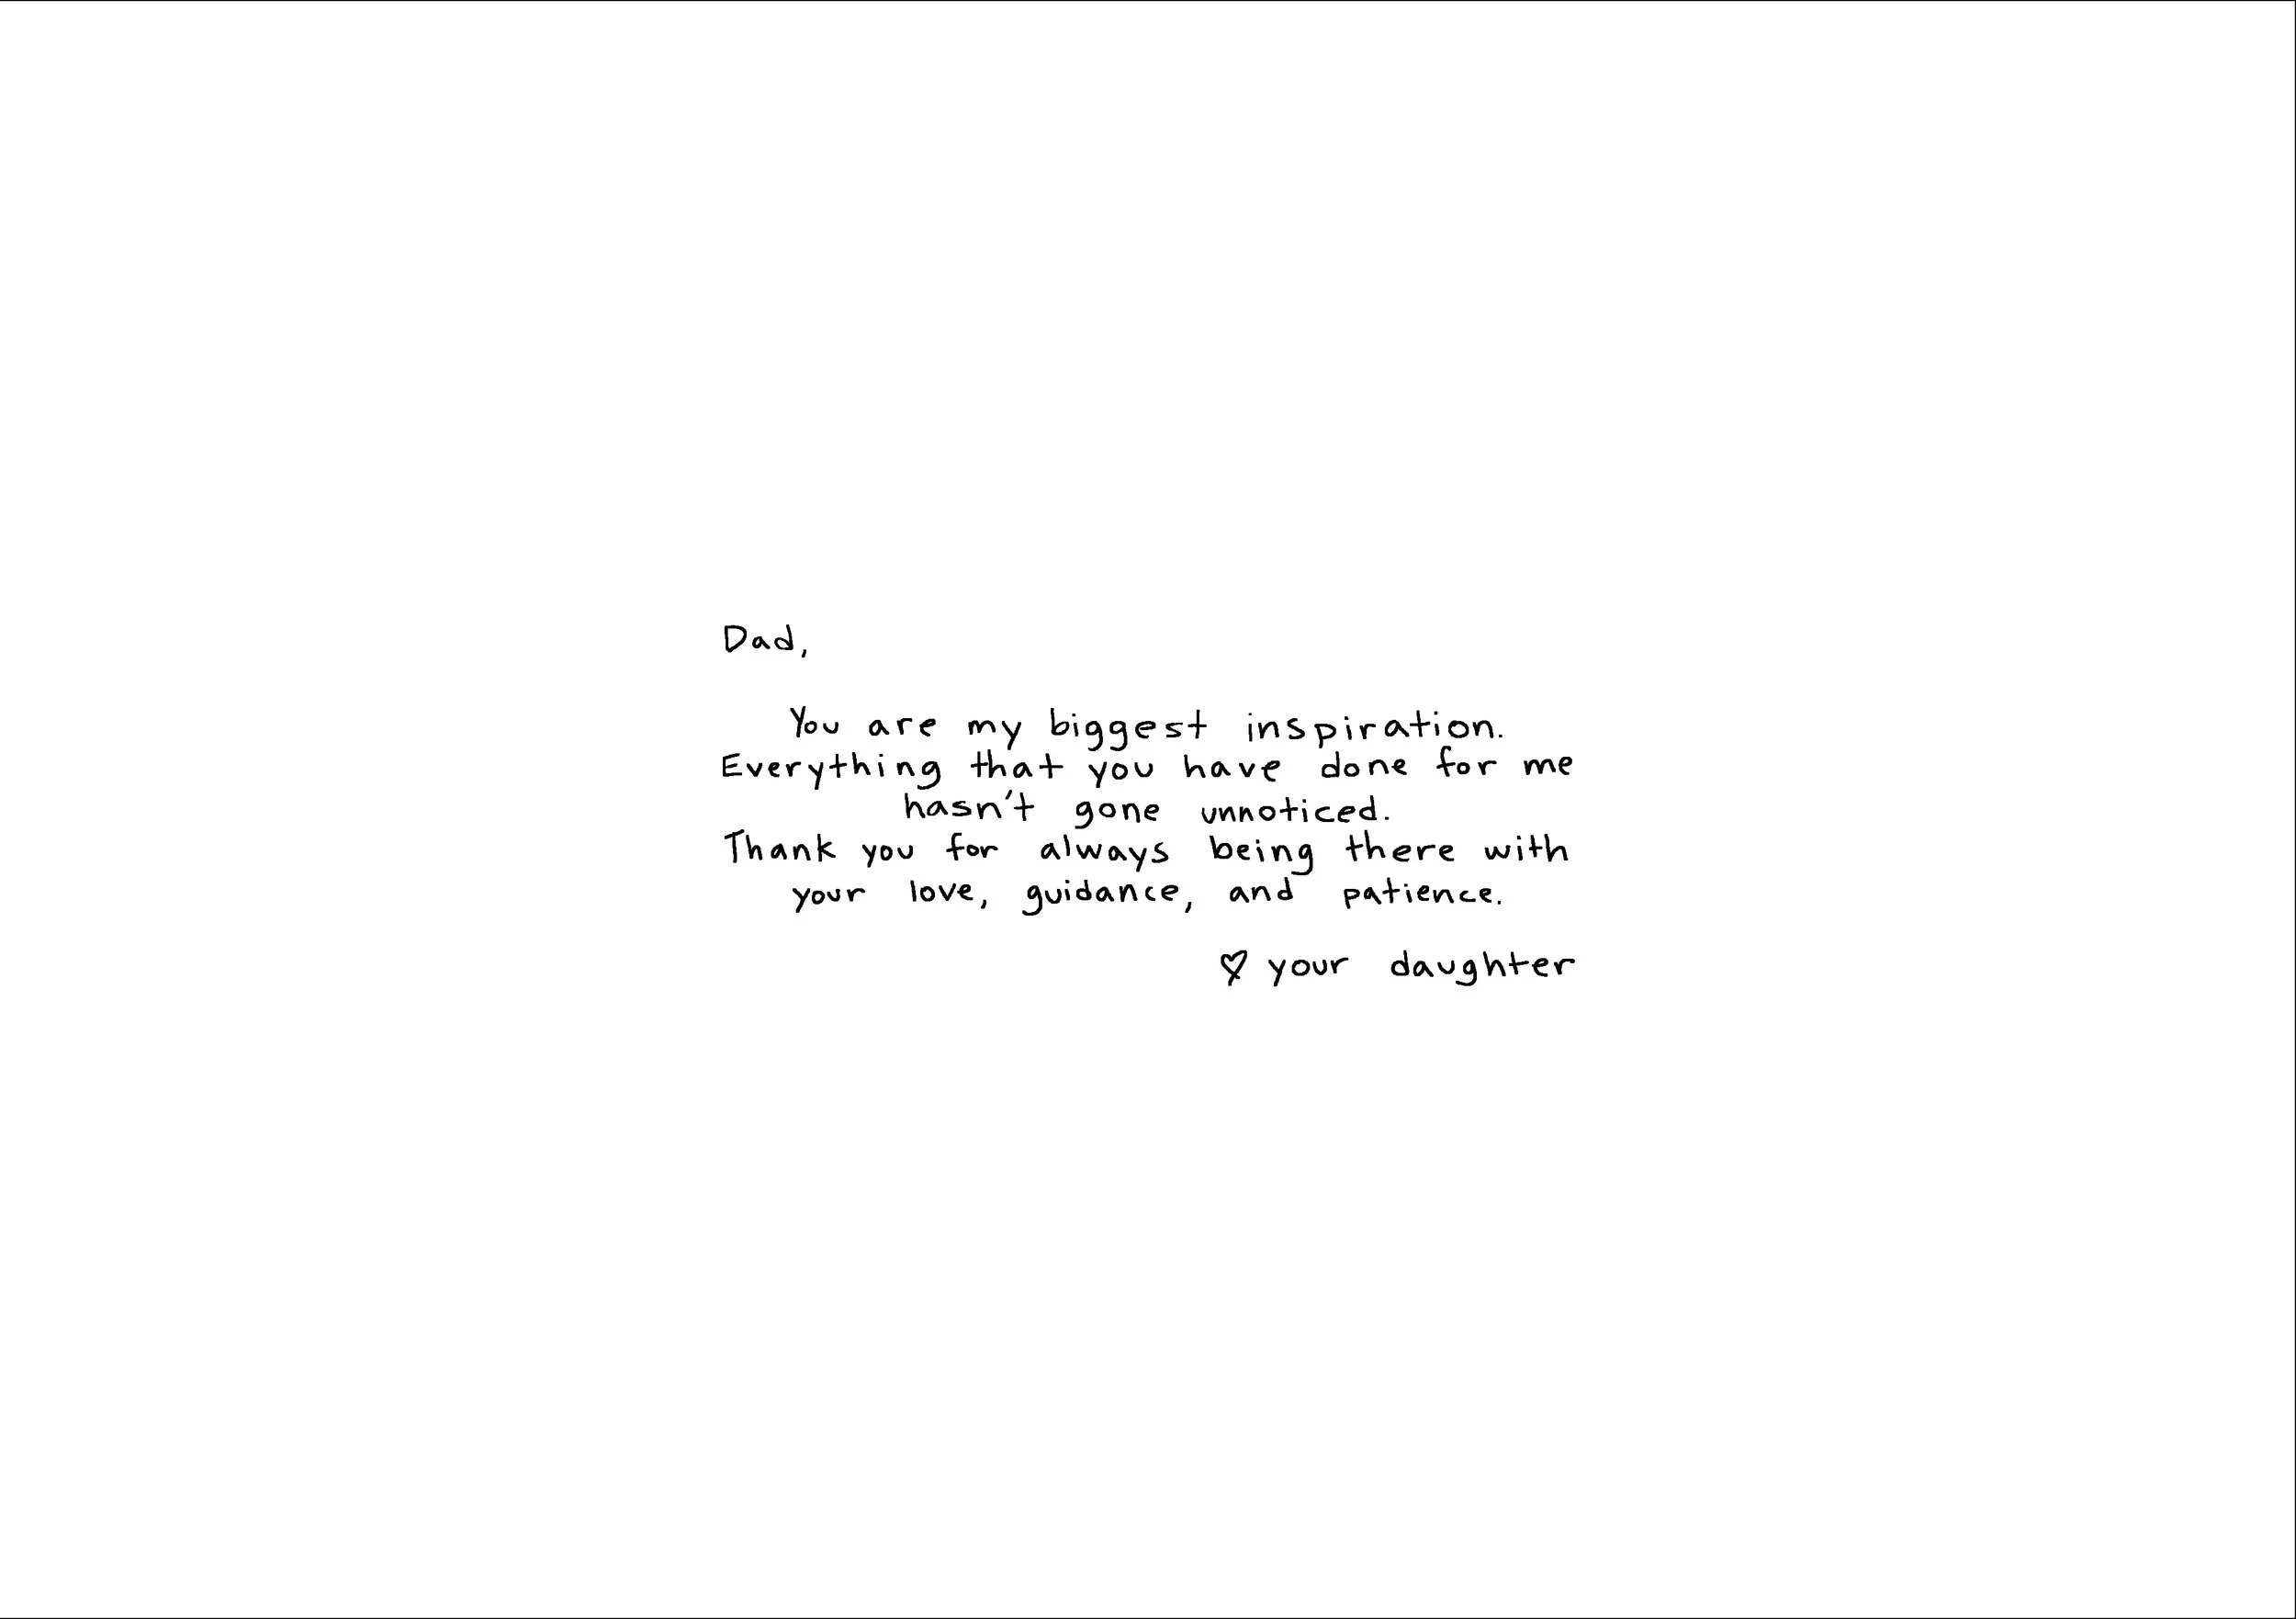 Dad,
You are my biggest inspiration.
Everything that you have done for me
hasn't gone unnoticed.
Thank you for always being there with
your love, guidance, and patience.
♡ your daughter